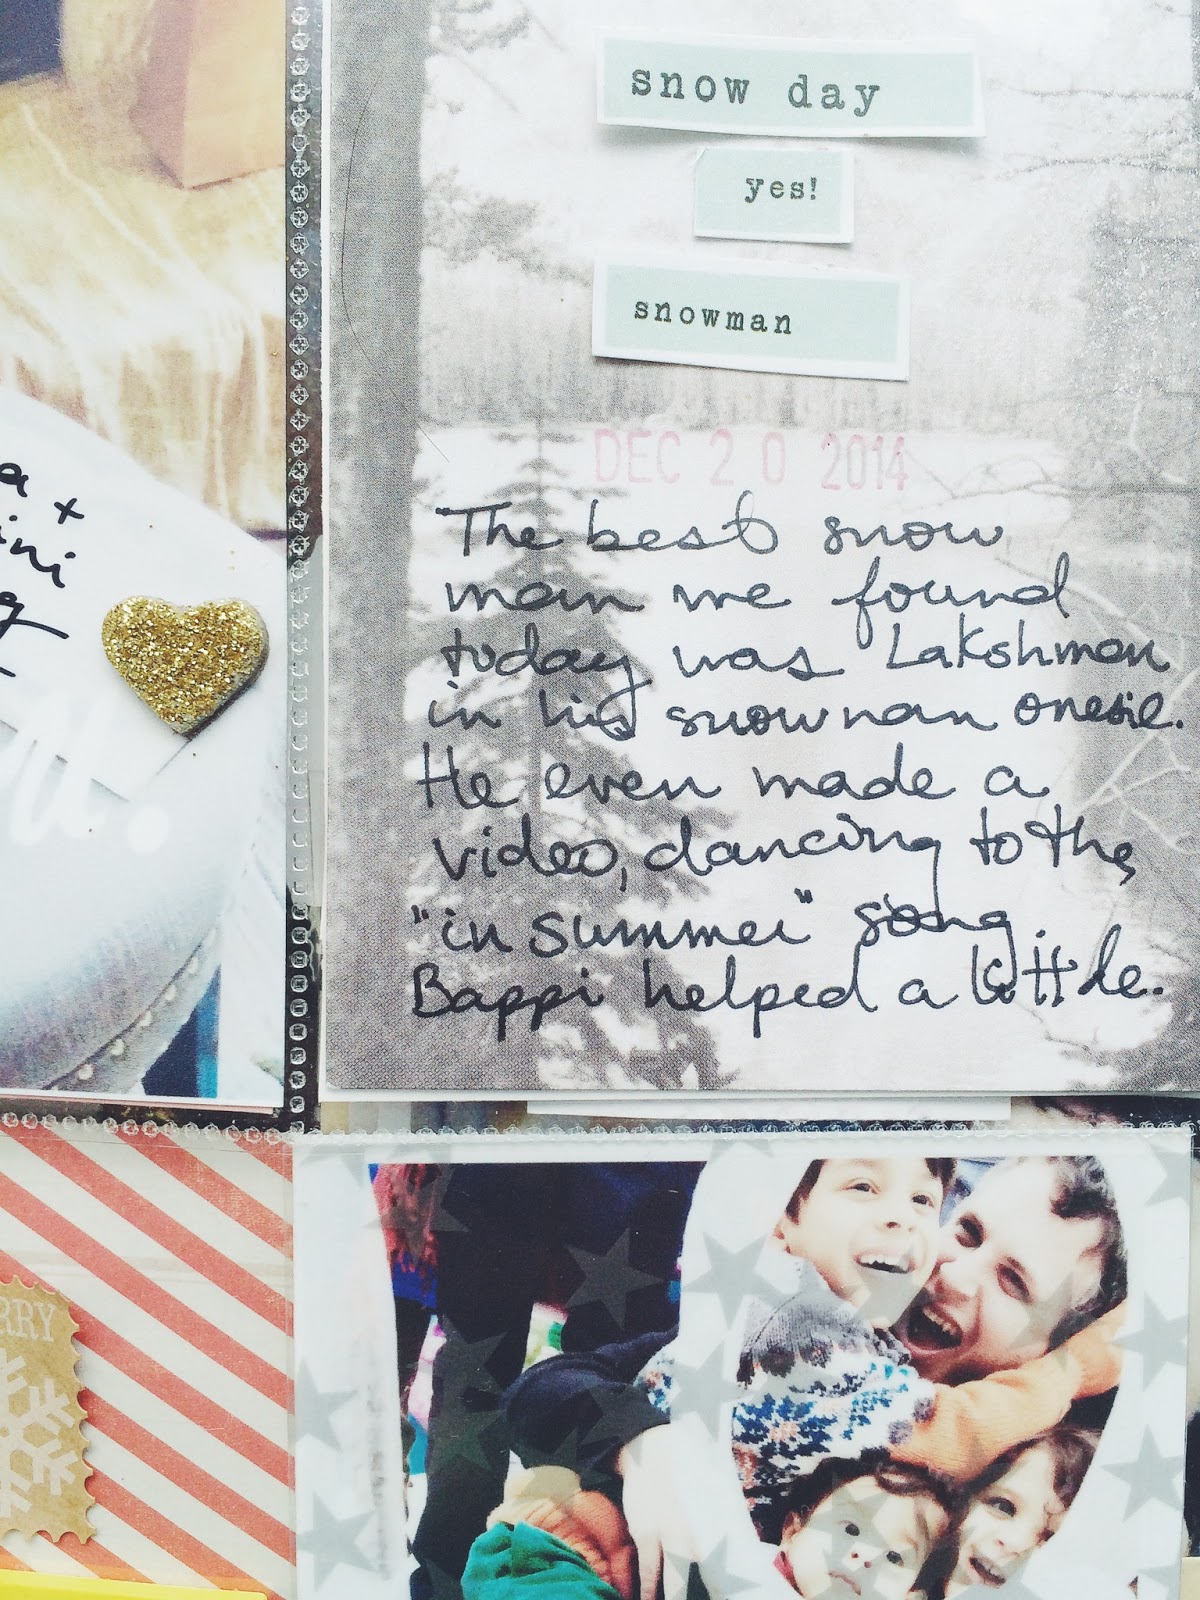 snow day
yes!
snowman
DEC 20 2014
"The best snow
man we found
today was Lakshman
in his snowman onesie.
He even made a
video, dancing to the
"in summer" song.
Bappi helped a little.
a +
ini
g
RRY